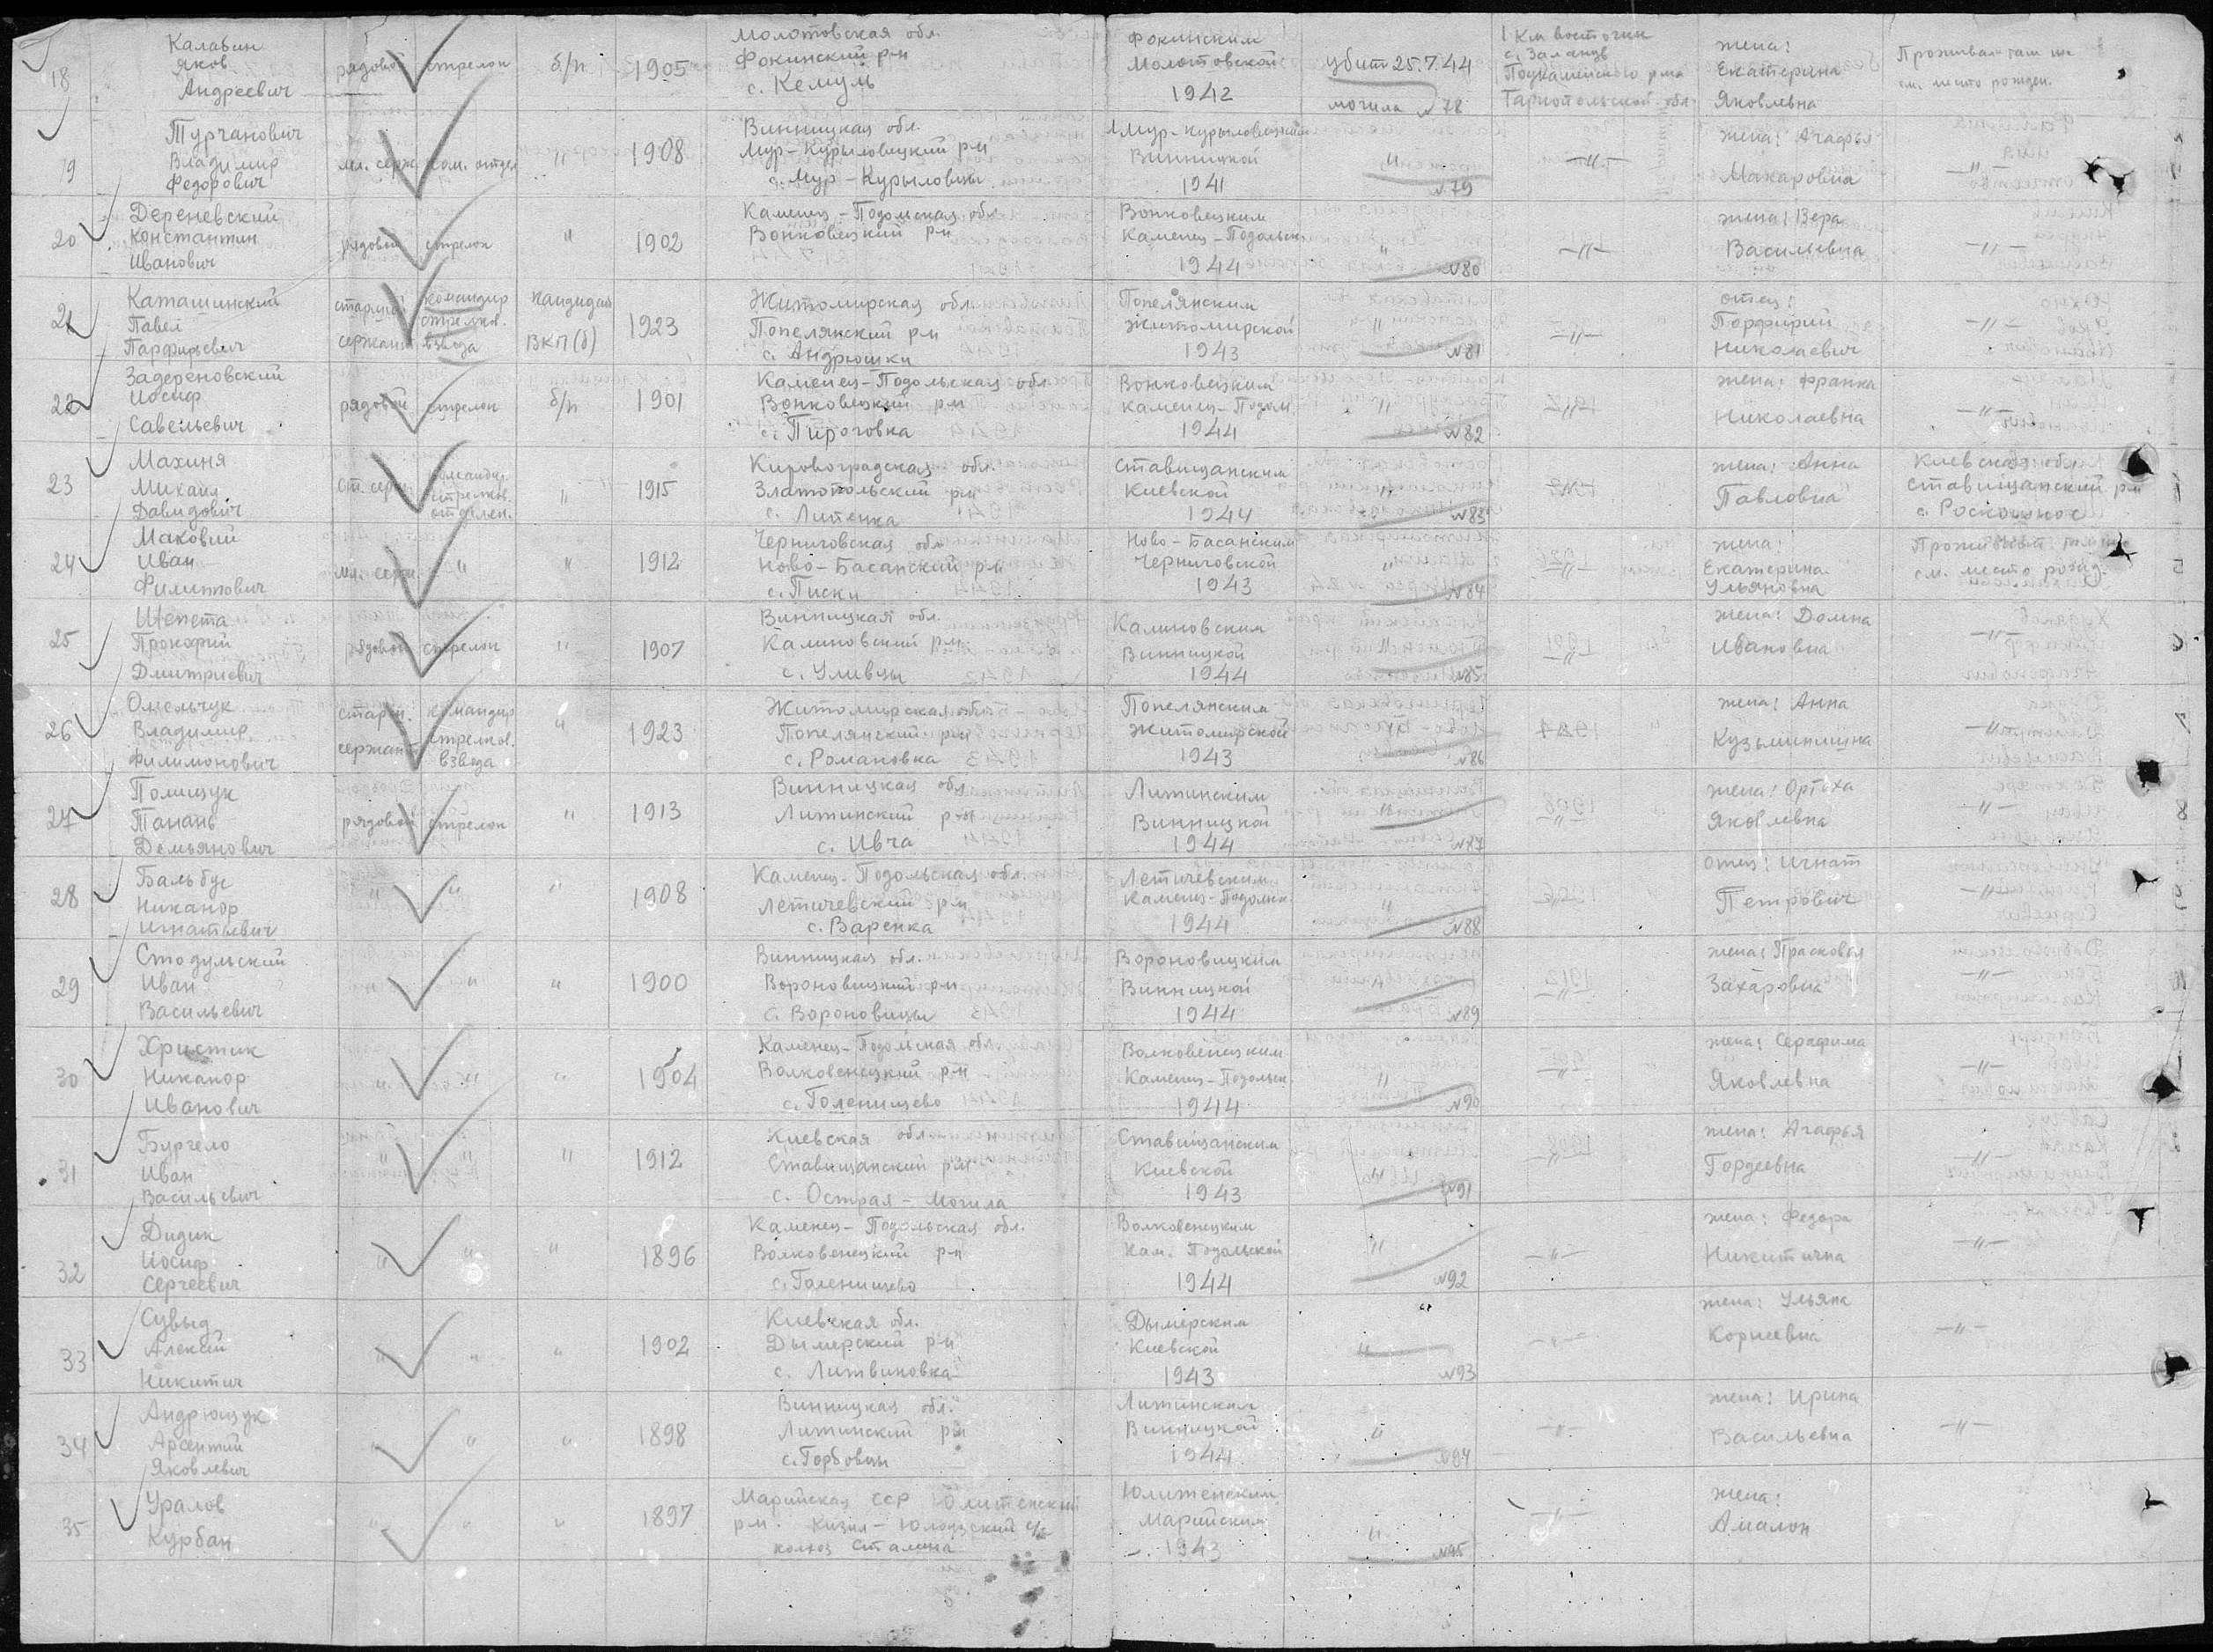 18
Калавин
Яков
Андреевич
рядовой
стрелок
б/п
1905
Молотовская обл.
Фокинский р-н
с. Кемуль
Фокинским
Молотовской
1942
убит 25.7.44
могила №78
1 км восточн
с.
Тарнопольской обл.
жена:
Екатерина
Яковлевна
Проживал там же
см. место рожден.
19
Турчанович
Владимир
Федорович
мл. серж
ком. отдел
"
1908
Винницкая обл.
Мур-Курыловицкий р-н
с. Мур-Курыловцы
Мур-Курыловецким
Винницкой
1941
"
№79
-"-
жена: Агафья
Макаровна
-"-
20
Дереневский
Константин
Иванович
рядовой
стрелок
"
1902
Каменец-Подольская обл.
Вонковецкий р-н
Вонковецким
Каменец-Подольск.
1944
"
№80
-"-
жена: Вера
Васильевна
-"-
21
Каташинский
Павел
Парфирьевич
старший
сержант
командир
стрелков.
взвода
кандидат
ВКП(б)
1923
Житомирская обл.
Попелянский р-н
с. Андрюшки
Попелянским
Житомирской
1943
"
№81
-"-
отец:
Порфирий
Николаевич
-"-
22
Задереновский
Иосиф
Савельевич
рядовой
стрелок
б/п
1901
Каменец-Подольская обл.
Вонковецкий р-н
с. Пироговка
Вонковецким
Каменец-Подол
1944
"
№82
-"-
жена: Франка
Николаевна
-"-
23
Махиня
Михаил
Давидович
ст. серж
командир
стрелков.
отделен.
"
1915
Кировоградская обл.
Златопольский р-н
с. Липенка
Ставищанским
Киевской
1944
"
№83
-"-
жена: Анна
Павловна
Киевская обл.
Ставищанский р-н
с. Роскошное
24
Маковий
Иван
Филиппович
мл. серж
"
"
1912
Черниговская обл
Ново-Басанский р-н
с. Писки
Ново-Басанским
Черниговской
1943
"
№84
-"-
жена:
Екатерина
Ульяновна
Проживает там же
см. место рожд.
25
Шепета
Прокофий
Дмитриевич
рядовой
стрелок
"
1907
Винницкая обл.
Калиновский р-н
с. Уливцы
Калиновским
Винницкой
1944
"
№85
-"-
жена: Домна
Ивановна
-"-
26
Омельчук
Владимир
Филимонович
старш.
сержант
командир
стрелков.
взвода
"
1923
Житомирская обл
Попелянский р-н
с. Романовка
Попелянским
Житомирской
1943
№86
жена: Анна
Кузьминишна
-"-
27
Полищук
Танань
Демьянович
рядовой
стрелок
"
1913
Винницкая обл
Литинский р-н
с. Ивча
Литинским
Винницкой
1944
"
№87
-"-
жена:
Яковлевна
-"-
28
Бальбус
Никанор
Игнатьевич
"
"
"
1908
Каменец-Подольская обл.
Летичевский р-н
с. Варенка
Летичевским
Каменец-Подольск.
1944
"
№88
-"-
отец: Игнат
Петрович
-"-
29
Стодульский
Иван
Васильевич
"
"
"
1900
Винницкая обл.
Вороновицкий р-н
с. Вороновицы
Вороновицким
Винницкой
1944
"
№89
-"-
жена: Прасковья
Захаровна
-"-
30
Христик
Никанор
Иванович
"
"
"
1904
Каменец-Подольская обл.
Волковенецкий р-н
с. Голенищево
Волковенецким
Каменец-Подольск.
1944
"
№90
-"-
жена: Серафима
Яковлевна
-"-
31
Бургело
Иван
Васильевич
"
"
"
1912
Киевская обл
Ставищанский р-н
с. Острая-Могила
Ставищанским
Киевской
1943
"
№91
-"-
жена: Агафья
Гордеевна
-"-
32
Дидик
Иосиф
Сергеевич
"
"
"
1896
Каменец-Подольская обл.
Волковенецкий р-н
с. Голенищево
Волковенецким
Кам. Подольской
1944
"
№92
-"-
жена: Федора
Никитична
-"-
33
Сувыд
Алексей
Никитич
"
"
"
1902
Киевская обл.
Дымерский р-н
с. Литвиновка
Дымерским
Киевской
1943
"
№93
-"-
жена: Ульяна
Корнеевна
-"-
34
Андрющук
Арсентий
Яковлевич
"
"
"
1898
Винницкая обл.
Литинский р-н
с. Горбовцы
Литинским
Винницкой
1944
"
№94
-"-
жена: Ирина
Васильевна
-"-
35
Уралов
Курбан
"
"
"
1897
Марийская ССР
р-н. с/с
колхоз Сталина
Марийским
1943
"
№95
-"-
жена:
Амалон